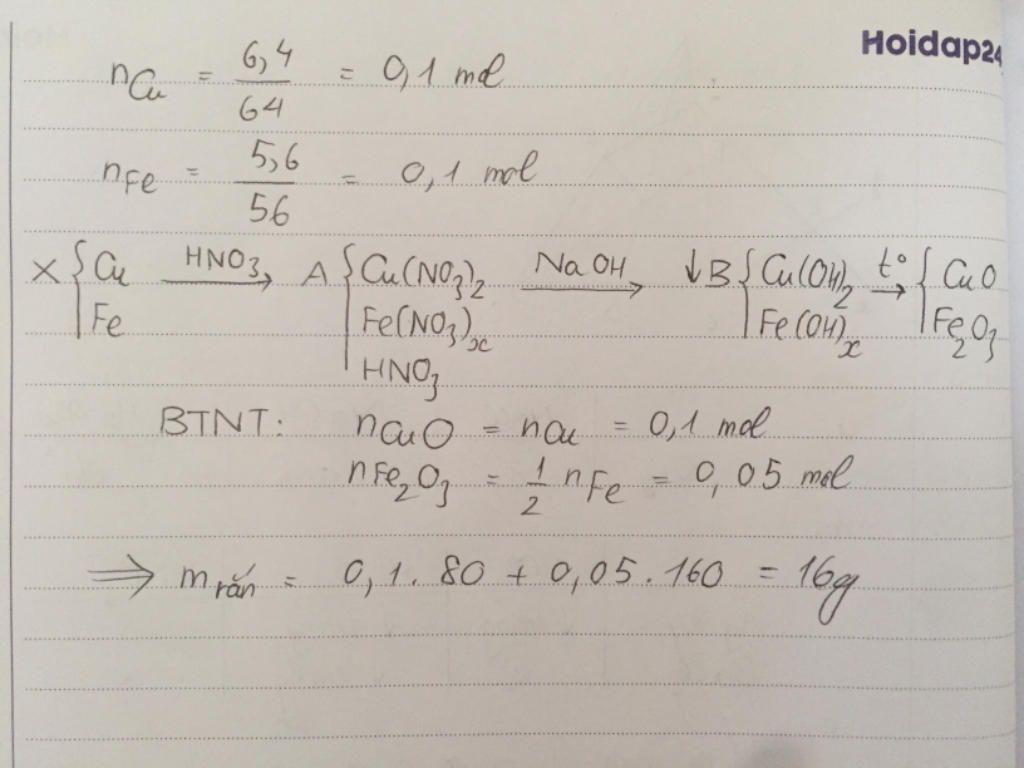 Hoidap24
nCu = 6,4/64 = 0,1 mol
nFe = 5,6/56 = 0,1 mol
X { Cu Fe —HNO3→ A { Cu(NO3)2 Fe(NO3)x HNO3 —NaOH→ ↓B { Cu(OH)2 Fe(OH)x —t°→ { CuO Fe2O3
BTNT: nCuO = nCu = 0,1 mol
nFe2O3 = 1/2 nFe = 0,05 mol
⇒ m rắn = 0,1.80 + 0,05.160 = 16g